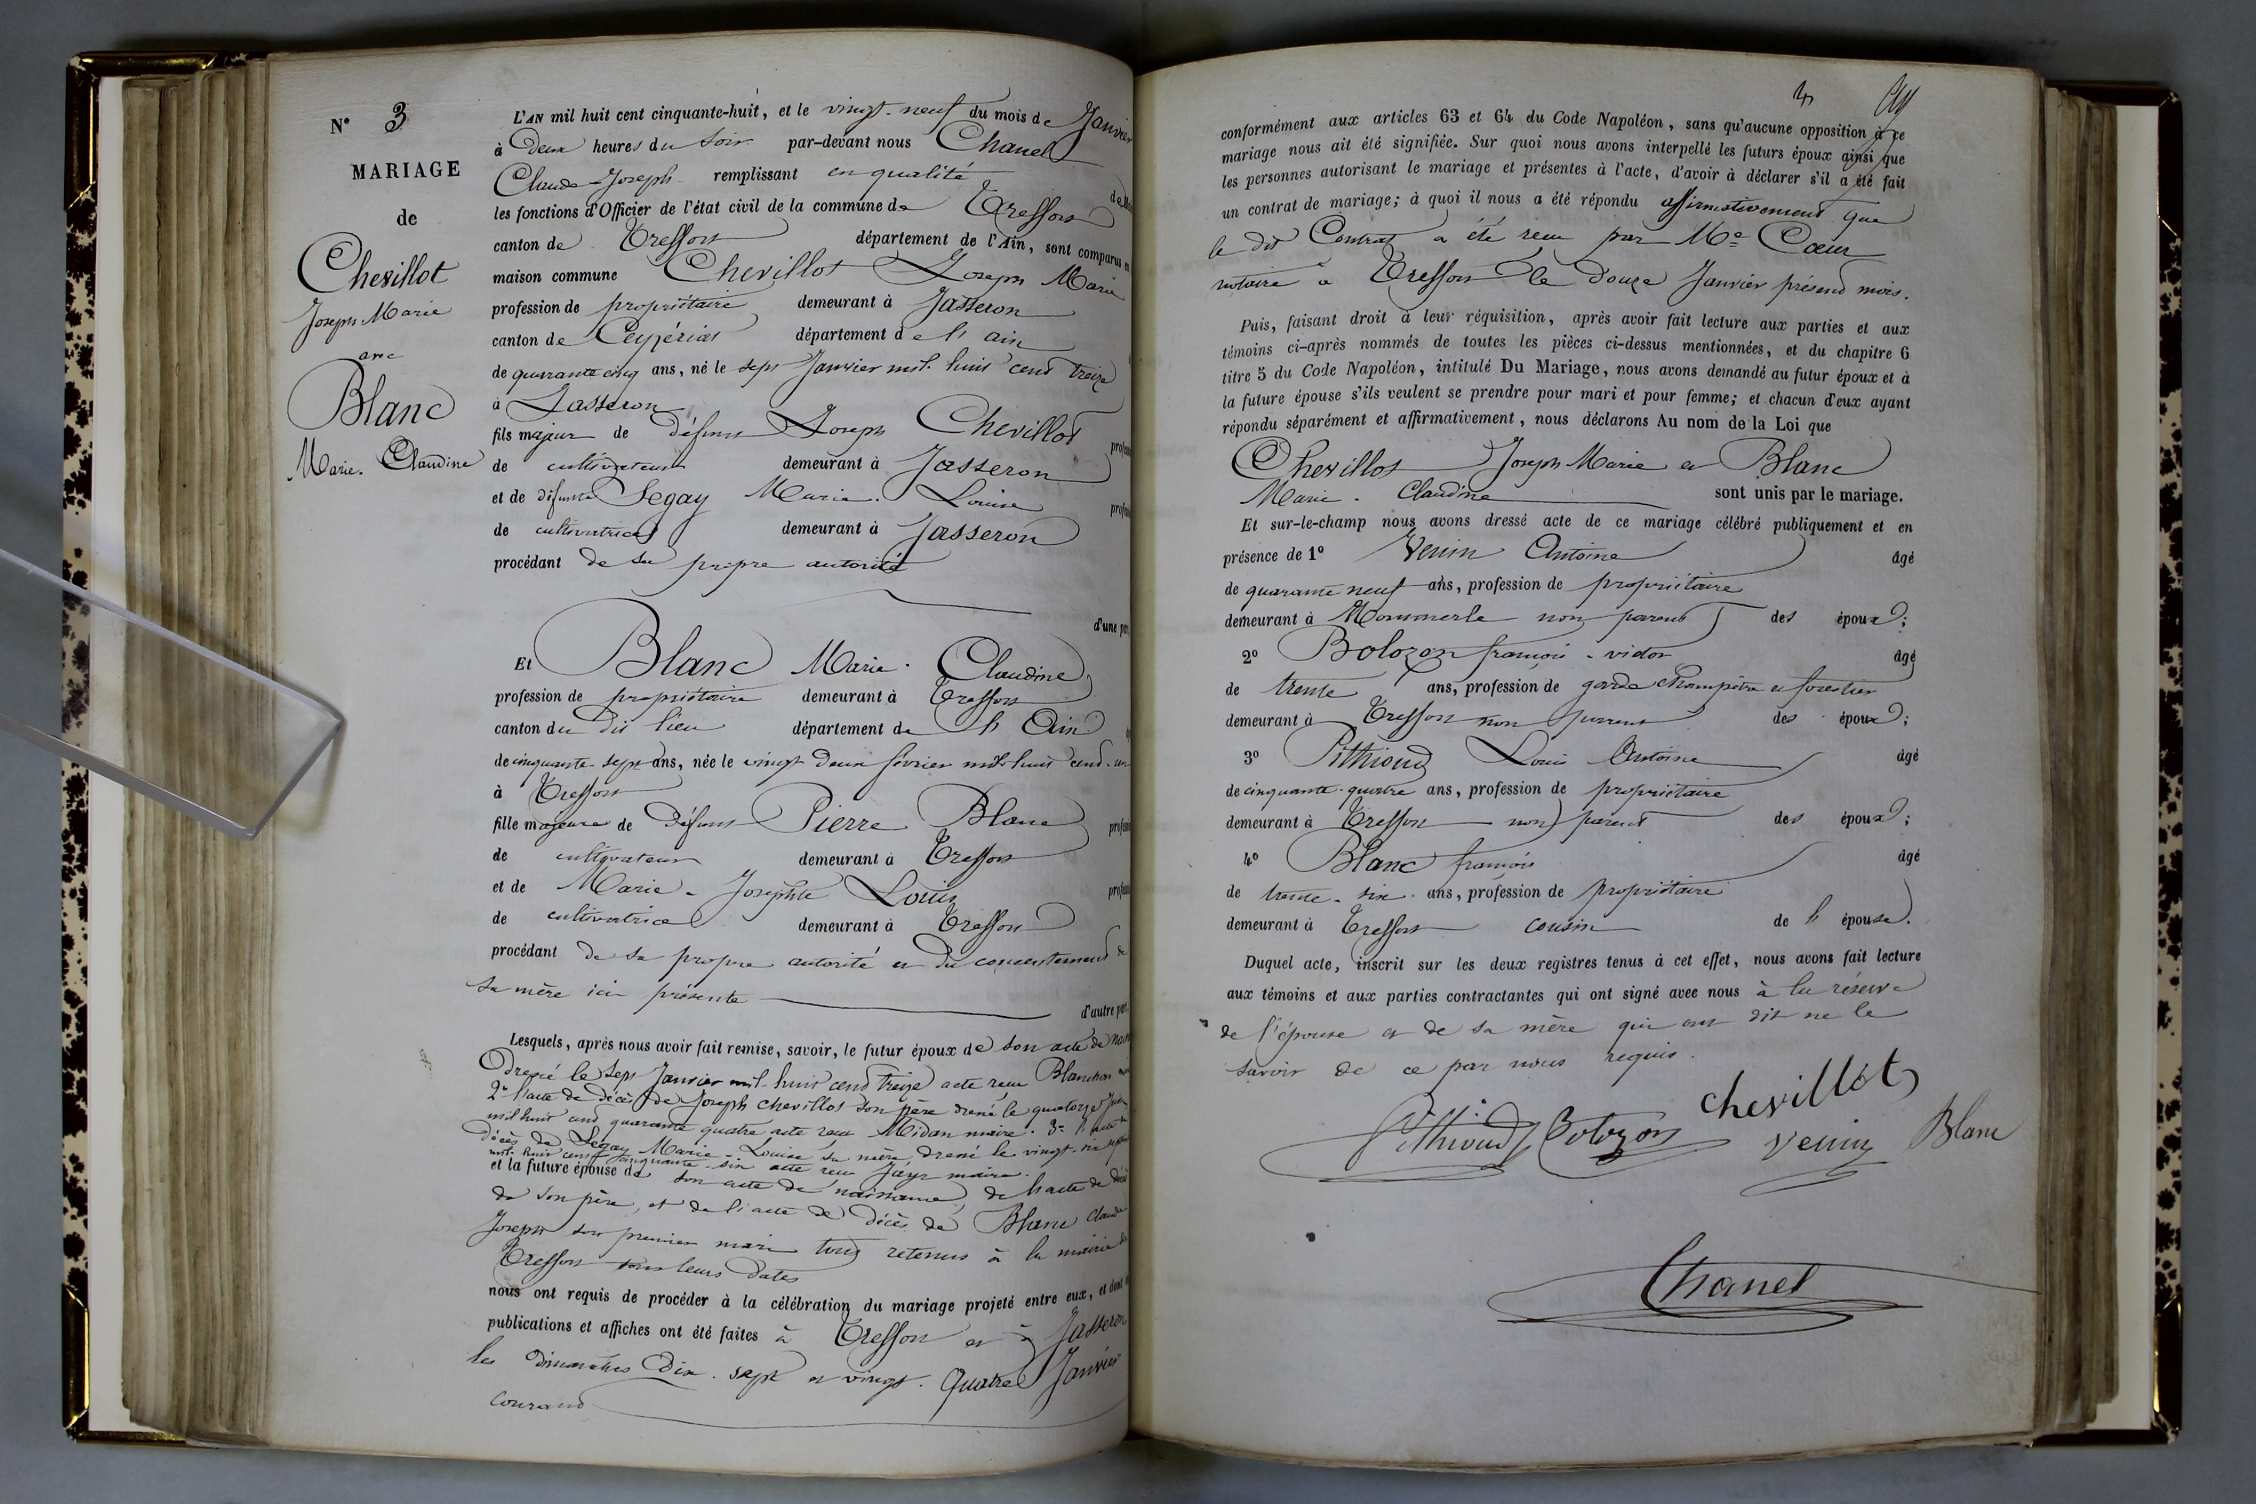 N° 3
MARIAGE
de
Chevillot
Joseph Marie
avec
Blanc
Marie. Claudine
L'AN mil huit cent cinquante-huit, et le vingt-neuf du mois de Janvier
à deux heures du soir par-devant nous Chanel
Claude-Joseph remplissant en qualité
les fonctions d'Officier de l'état civil de la commune de Treffort
canton de Treffort département de l'Ain, sont comparus en
maison commune Chevillot Joseph Marie
profession de propriétaire demeurant à Jasseron
canton de Ceyzériat département de l'ain
de quarante cinq ans, né le sept Janvier mil huit cent treize
à Jasseron
fils majeur de défunt Joseph Chevillot
de cultivateur demeurant à Jasseron
et de défunte Segay Marie. Louise
de cultivatrice demeurant à Jasseron
procédant de sa propre autorité
d'une part
Et Blanc Marie. Claudine
profession de propriétaire demeurant à Treffort
canton du dit lieu département de l'Ain
de cinquante sept ans, née le vingt deux février mil huit cent un
à Treffort
fille majeure de défunt Pierre Blanc
de cultivateur demeurant à Treffort
et de Marie-Josephte Louis
de cultivatrice demeurant à Treffort
procédant de sa propre autorité et du concentement de
sa mère ici présente
d'autre part
Lesquels, après nous avoir fait remise, savoir, le futur époux de son acte de
dressé le sept Janvier mil huit cent treize acte reçu Blanchon
2° l'acte de décès de Joseph chevillot son père dressé le quatorze
mil huit cent quarante quatre acte reçu Midan maire. 3° l'acte de
décès de Segay Marie-Louise sa mère dressé le vingt-six
mil huit cent cinquante-six acte reçu Jayr maire.
et la future épouse de son acte de naissance, de l'acte de décès
de son père, et de l'acte de décès de Blanc Claude
Joseph son premier mari tous retenus à la mairie de
Treffort sous leurs dates
nous ont requis de procéder à la célébration du mariage projeté entre eux, et dont
publications et affiches ont été faites à Treffort et à Jasseron
les dimanches dix-sept et vingt-quatre Janvier
courant
3
conformément aux articles 63 et 64 du Code Napoléon, sans qu'aucune opposition à ce
mariage nous ait été signifiée. Sur quoi nous avons interpellé les futurs époux ainsi que
les personnes autorisant le mariage et présentes à l'acte, d'avoir à déclarer s'il a été fait
un contrat de mariage; à quoi il nous a été répondu affirmativement que
le dit Contrat a été reçu par Me Cœur
notaire à Treffort le douze Janvier présent mois.
Puis, faisant droit à leur réquisition, après avoir fait lecture aux parties et aux
témoins ci-après nommés de toutes les pièces ci-dessus mentionnées, et du chapitre 6
titre 5 du Code Napoléon, intitulé Du Mariage, nous avons demandé au futur époux et à
la future épouse s'ils veulent se prendre pour mari et pour femme; et chacun d'eux ayant
répondu séparément et affirmativement, nous déclarons Au nom de la Loi que
Chevillot Joseph Marie et Blanc
Marie. Claudine sont unis par le mariage.
Et sur-le-champ nous avons dressé acte de ce mariage célébré publiquement et en
présence de 1° Venin Antoine âgé
de quarante neuf ans, profession de propriétaire
demeurant à Mommerle non parent des époux;
2° Bolozon françois-victor âgé
de trente ans, profession de garde Champêtre et forestier
demeurant à Treffort non parent des époux;
3° Pithioud Louis Antoine âgé
de cinquante-quatre ans, profession de propriétaire
demeurant à Treffort non parent des époux;
4° Blanc françois âgé
de trente-six ans, profession de propriétaire
demeurant à Treffort cousin de l'épouse.
Duquel acte, inscrit sur les deux registres tenus à cet effet, nous avons fait lecture
aux témoins et aux parties contractantes qui ont signé avec nous à la réserve
de l'épouse et de sa mère qui ont dit ne le
savoir de ce par nous requis.
chevillot
Pithioud Bolozon Venin Blanc
Chanel